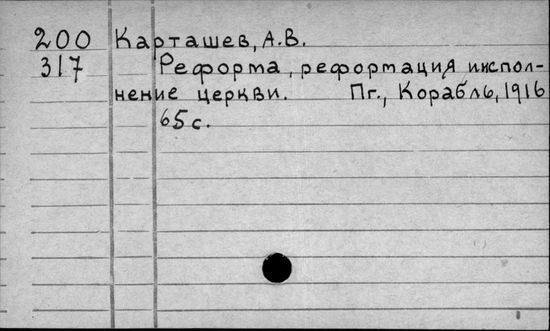 200 Карташев, А.В.
317 Реформа, реформация и испол-
нение церкви. Пг., Корабль, 1916
65 с.